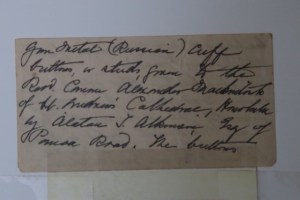 Gun Metal (Russian) Cuff
buttons, or studs, given to the
Revd. Canon Alexander Mackintosh
of St. Andrew's Cathedral, Honolulu
by Alatau T. Atkinson, Esq of
Board. The buttons